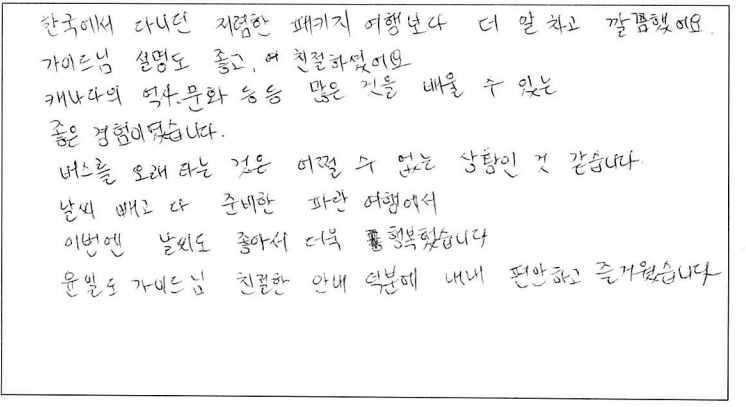 한국에서 다니던 저렴한 패키지 여행보다 더 알차고 깔끔했어요.
가이드님 설명도 좋고, 친절하셨어요
캐나다의 역사.문화 등등 많은 것을 배울 수 있는
좋은 경험이였습니다.
버스를 오래 타는 것은 어쩔 수 없는 상황인 것 같습니다.
날씨 빼고 다 준비한 파란 여행에서
이번엔 날씨도 좋아서 더욱 행복했습니다
윤일도 가이드님 친절한 안내 덕분에 내내 편안하고 즐거웠습니다